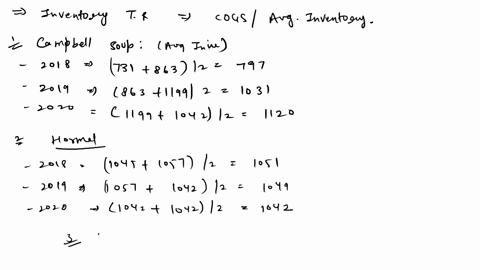 ⇒ Inventory T.R ⇒ COGS / Avg. Inventory.
1 Campbell Soup: (Avg Inve)
- 2018 ⇒ (731 + 863) /2 = 797
- 2019 ⇒ (863 + 1199) 2 = 1031
- 2020 = (1199 + 1042) /2 = 1120
2 Hormel
- 2018 = (1045 + 1057) /2 = 1051
- 2019 ⇒ (1057 + 1042) /2 = 1049
- 2020 → (1042 + 1042) /2 = 1042
3